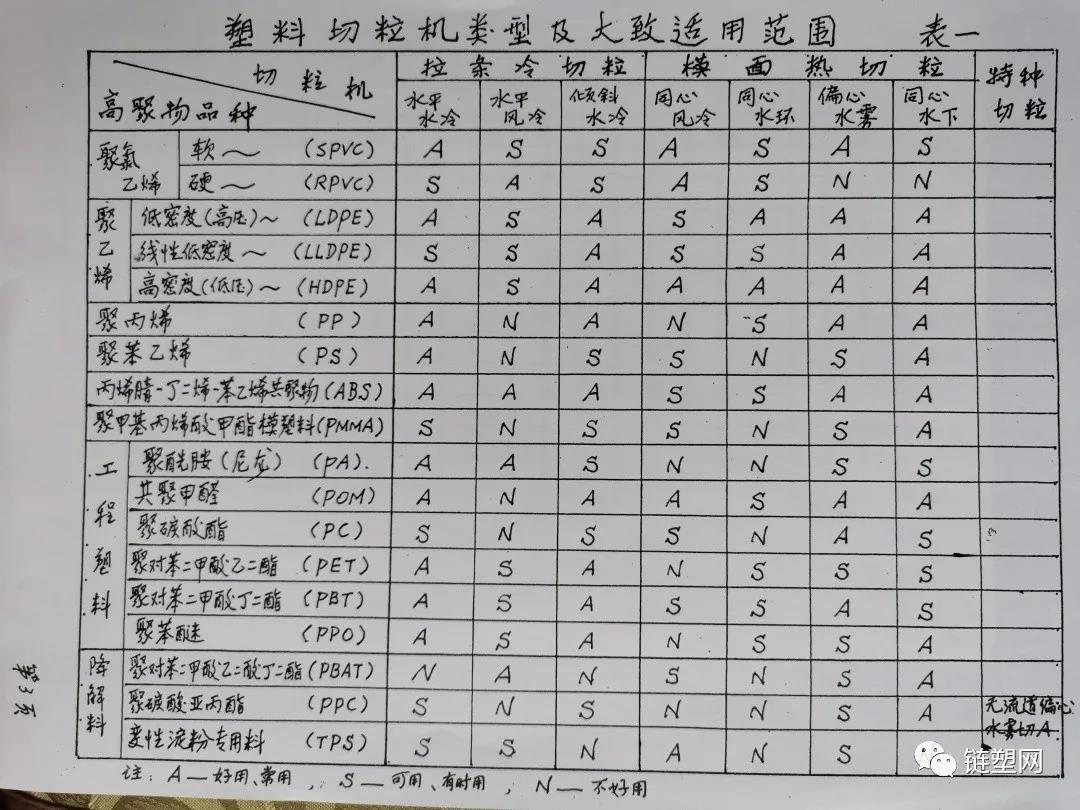 塑料切粒机类型及大致适用范围 表一
切粒机 拉条冷切粒 模面热切粒 特种切粒
高聚物品种 水平水冷 水平风冷 倾斜水冷 同心风冷 同心水环 偏心水雾 同心水下
聚氯乙烯 软~ (SPVC) A S S A S A S
硬~ (RPVC) S A S A S N N
聚乙烯 低密度(高压)~ (LDPE) A S A S A A A
线性低密度~ (LLDPE) S S A S S A A
高密度(低压)~ (HDPE) A S A A A A A
聚丙烯 (PP) A N A N S A A
聚苯乙烯 (PS) A N S S N S A
丙烯腈-丁二烯-苯乙烯共聚物(ABS) A A A S S A A
聚甲基丙烯酸甲酯模塑料(PMMA) S N S S N S A
工程塑料 聚酰胺(尼龙) (PA). A A S N N S S
共聚甲醛 (POM) A N A A S A A
聚碳酸酯 (PC) S N S S N A S
聚对苯二甲酸乙二酯 (PET) A S A N S S S
聚对苯二甲酸丁二酯 (PBT) A S A S S A S
聚苯醚 (PPO) A S A N S S A
降解料 聚对苯二甲酸乙二酸丁二酯(PBAT) N A N S N S A
聚碳酸亚丙酯 (PPC) S N S N N S A 无流道偏心水雾切A
变性淀粉专用料 (TPS) S S N A N S
注: A—好用、常用, S—可用、有时用, N—不好用
第3页
链塑网